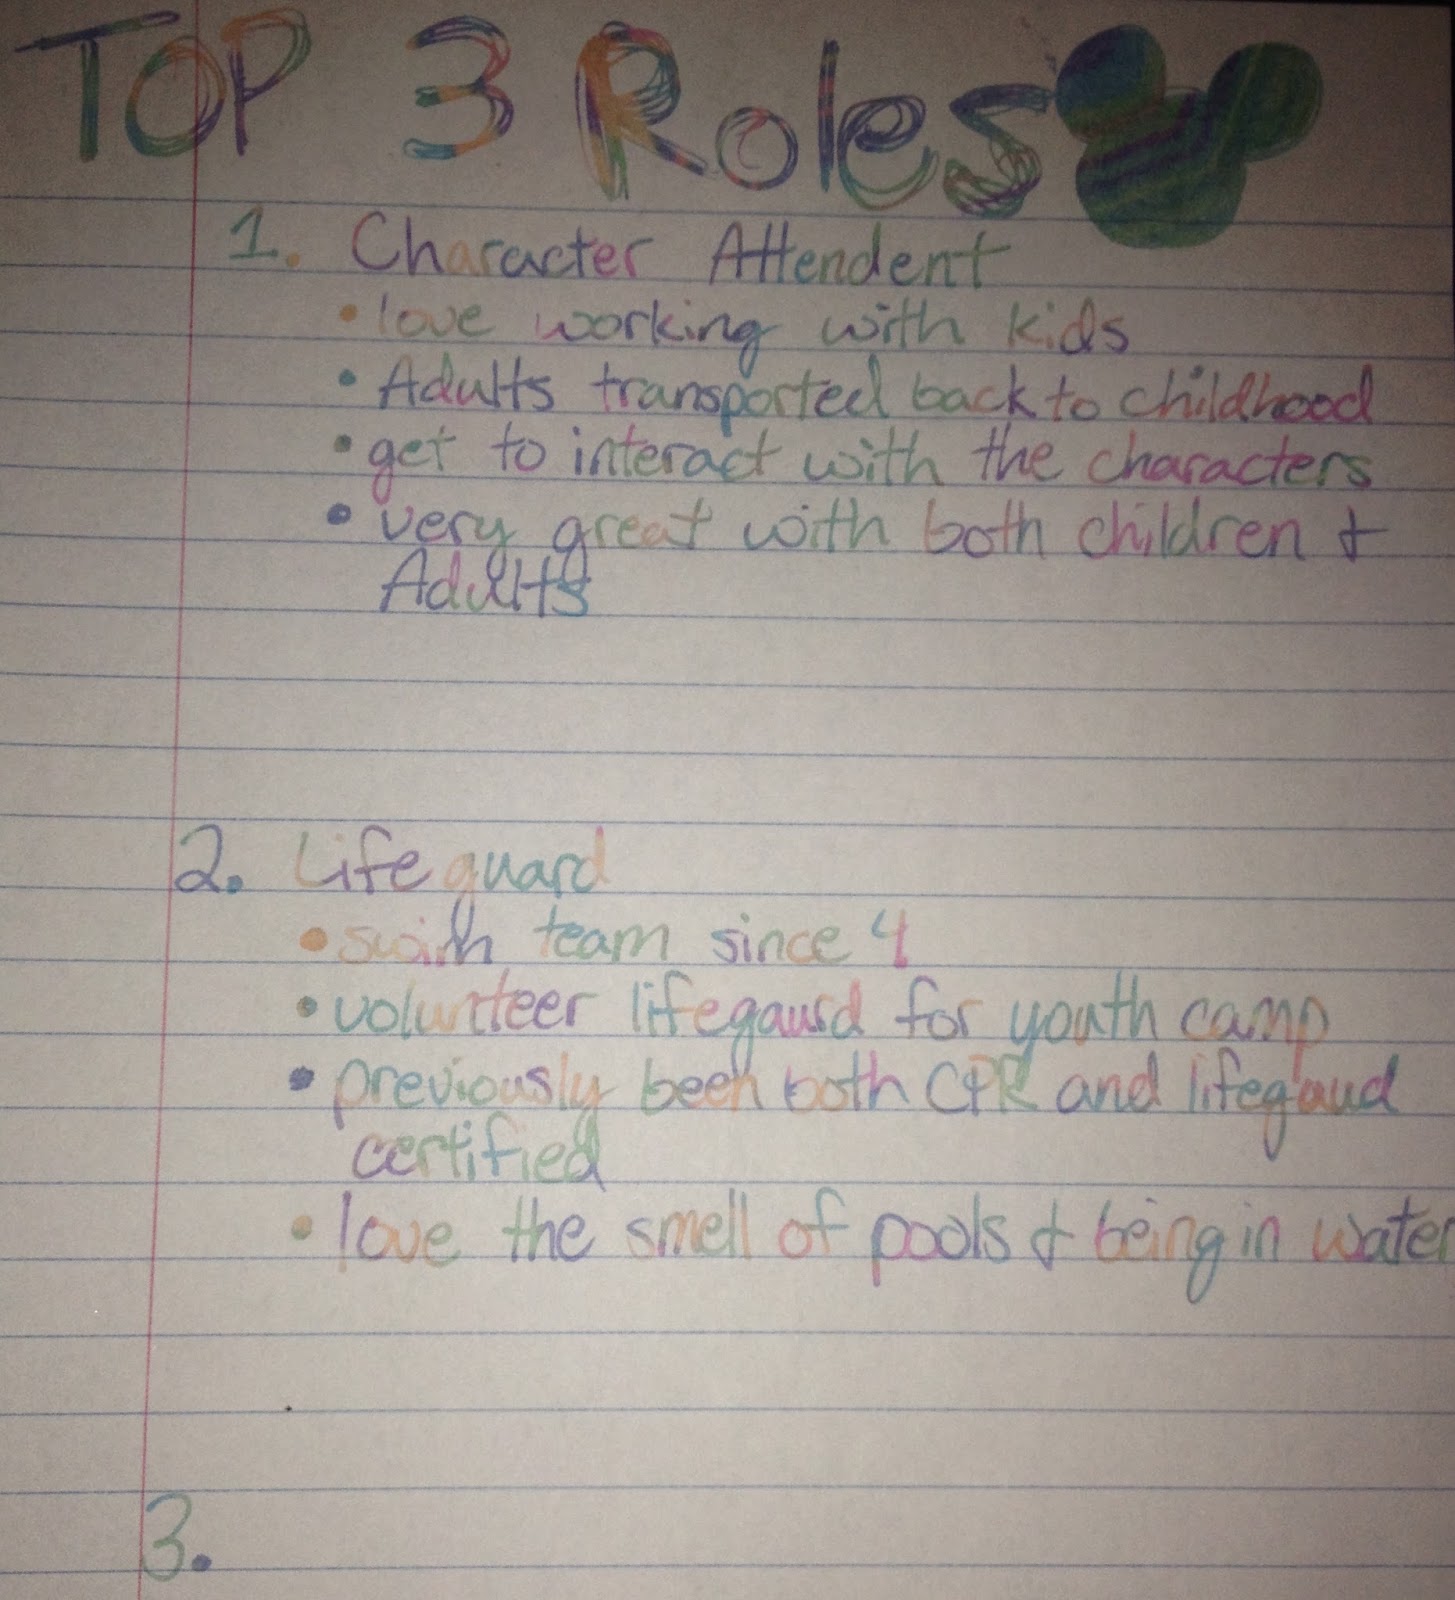 TOP 3 Roles
1. Character Attendent
• love working with kids
• Adults transported back to childhood
• get to interact with the characters
• very great with both children &
Adults
2. Lifeguard
• swim team since 4
• volunteer lifegaurd for youth camp
• previously been both CPR and lifegaurd
certified
• love the smell of pools & being in water
3.